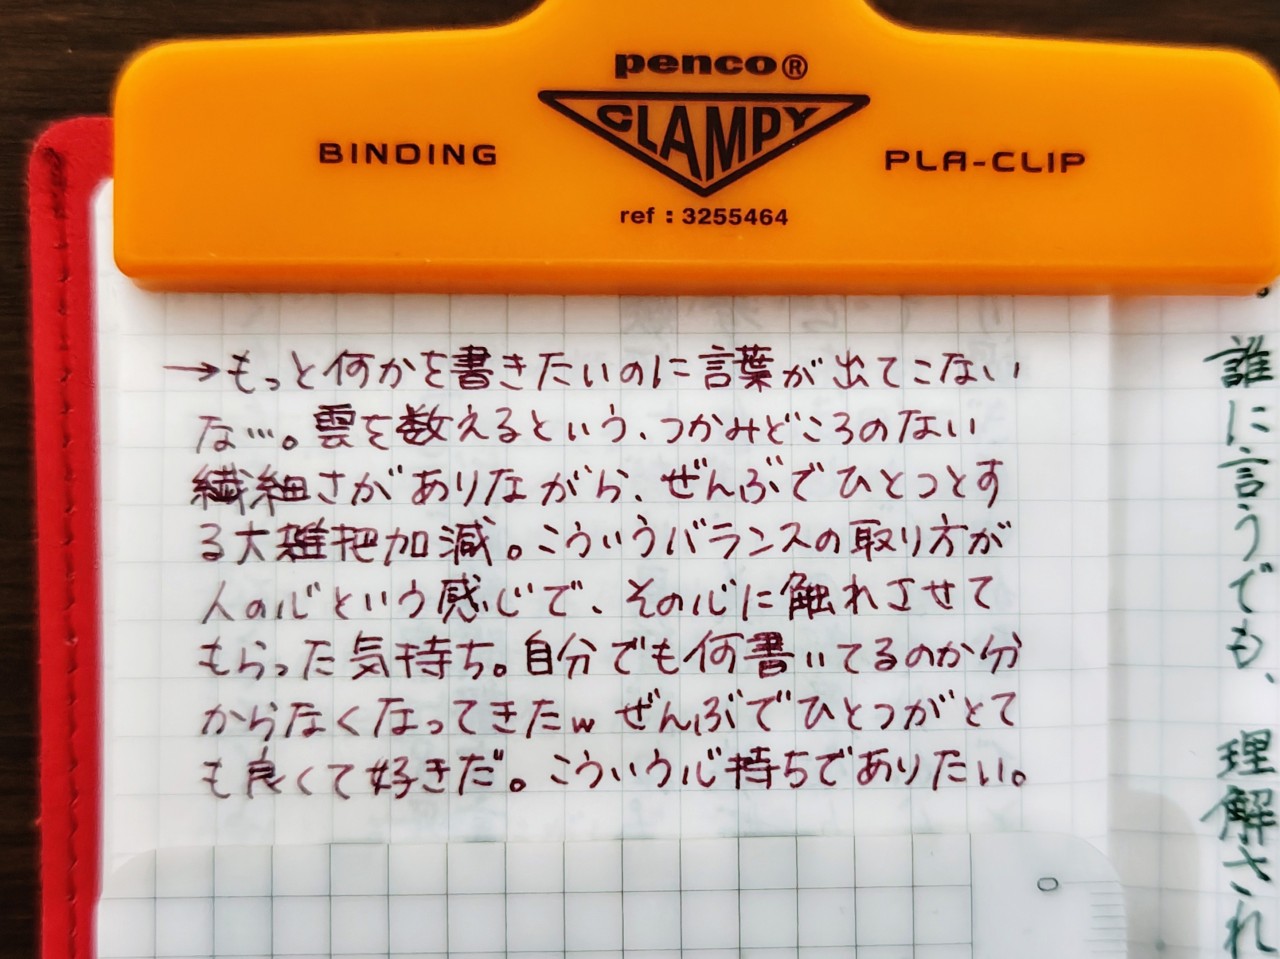 penco®
CLAMPY
BINDING
PLA-CLIP
ref : 3255464
→もっと何かを書きたいのに言葉が出てこない
な…。雲を数えるという、つかみどころのない
繊細さがありながら、ぜんぶでひとつとす
る大雑把加減。こういうバランスの取り方が
人の心という感じで、その心に触れさせて
もらった気持ち。自分でも何書いてるのか分
からなくなってきたw ぜんぶでひとつがとて
も良くて好きだ。こういう心持ちでありたい。
誰に言うでも、理解され